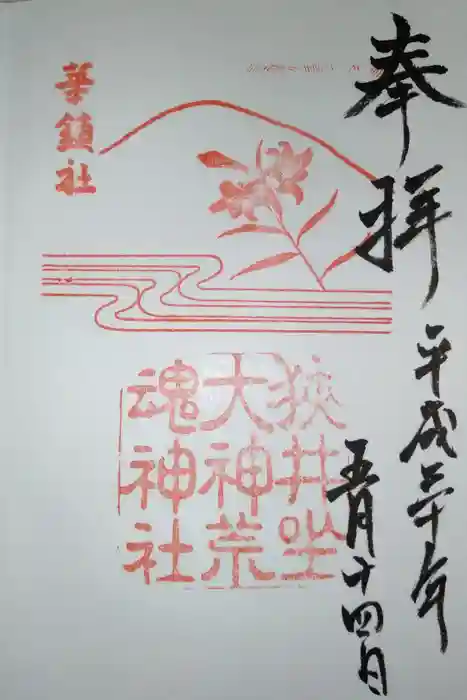 奉拝
平成三十年
五月十四日
華鎮社
狭井坐
大神荒
魂神社